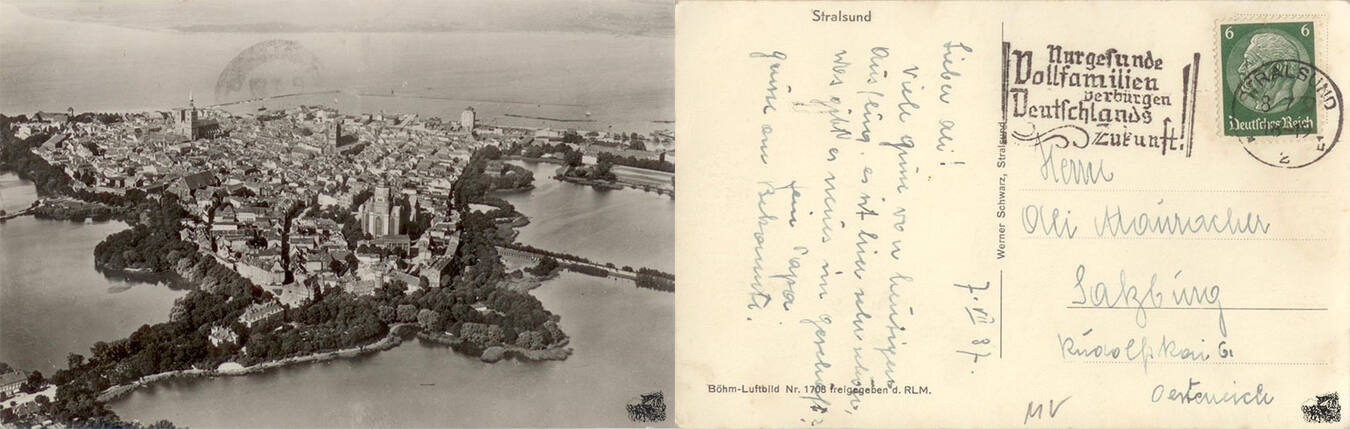 Stralsund
Lieber Oli!
Viele Grüße vom heutigen
Ausflug, es ist hier sehr schön,
was gibt es neues im Geschäft?
Dein Papa
Grüße an Bekannte.
7. VII 37.
Werner Schwarz, Stralsund
Böhm-Luftbild Nr. 1708 freigegeben d. RLM.
Nur gesunde
Vollfamilien
verbürgen
Deutschlands
Zukunft!
6 6
Deutsches Reich
STRALSUND
2
Herrn
Oli Mauracher
Salzburg
Rudolfskai 6
Oesterreich
MV